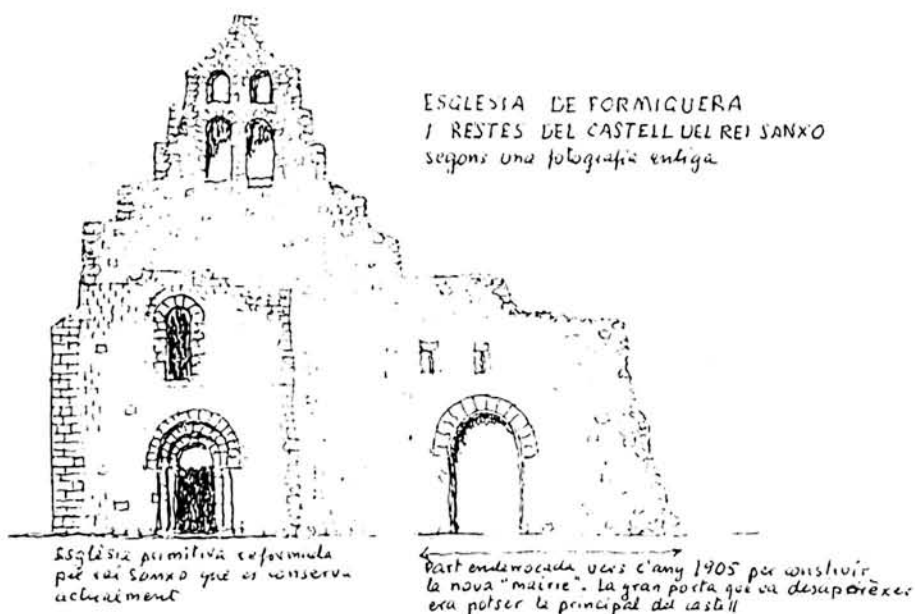 ESGLESIA DE FORMIGUERA
I RESTES DEL CASTELL DEL REI SANXO
segons una fotografia antiga
Església primitiva reformada
pel rei Sanxo que es conserva
actualment
Part enderrocada vers l'any 1905 per construir
la nova "mairie". La gran porta que va desaparèixer
era potser la principal del castell